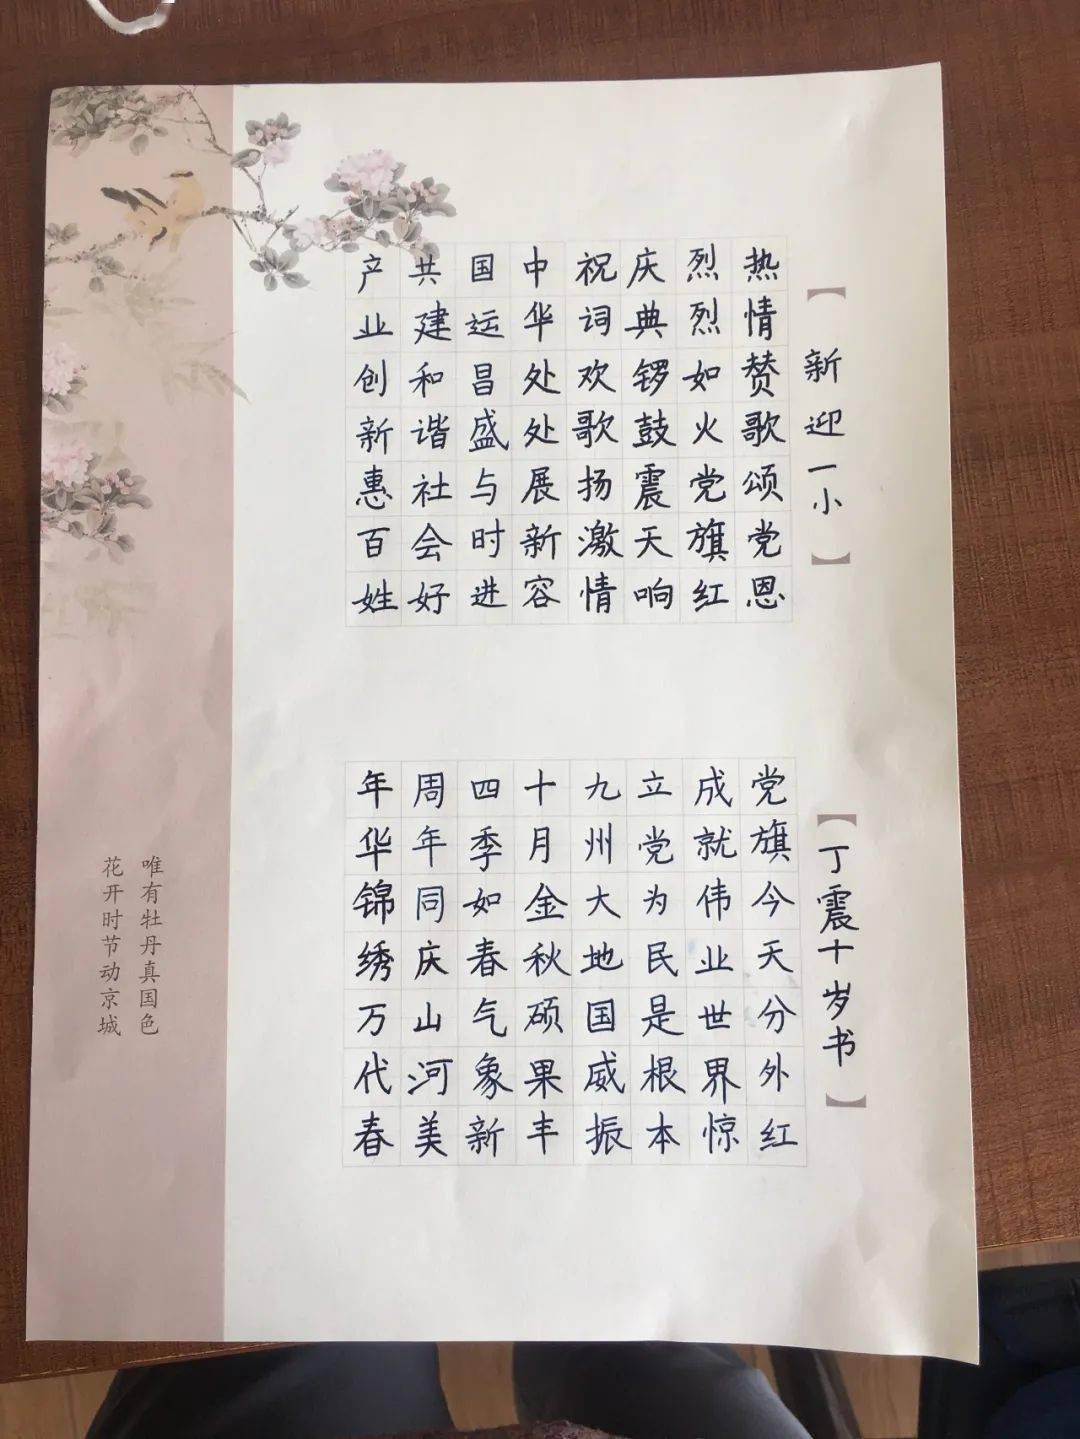 新迎一小
热情赞歌颂党恩
烈烈如火党旗红
庆典锣鼓震天响
祝词欢歌扬激情
中华处处展新容
国运昌盛与时进
共建和谐社会好
产业创新惠百姓
丁震十岁书
党旗今天分外红
成就伟业世界惊
立党为民是根本
九州大地国威振
十月金秋硕果丰
四季如春气象新
周年同庆山河美
年华锦绣万代春
唯有牡丹真国色
花开时节动京城